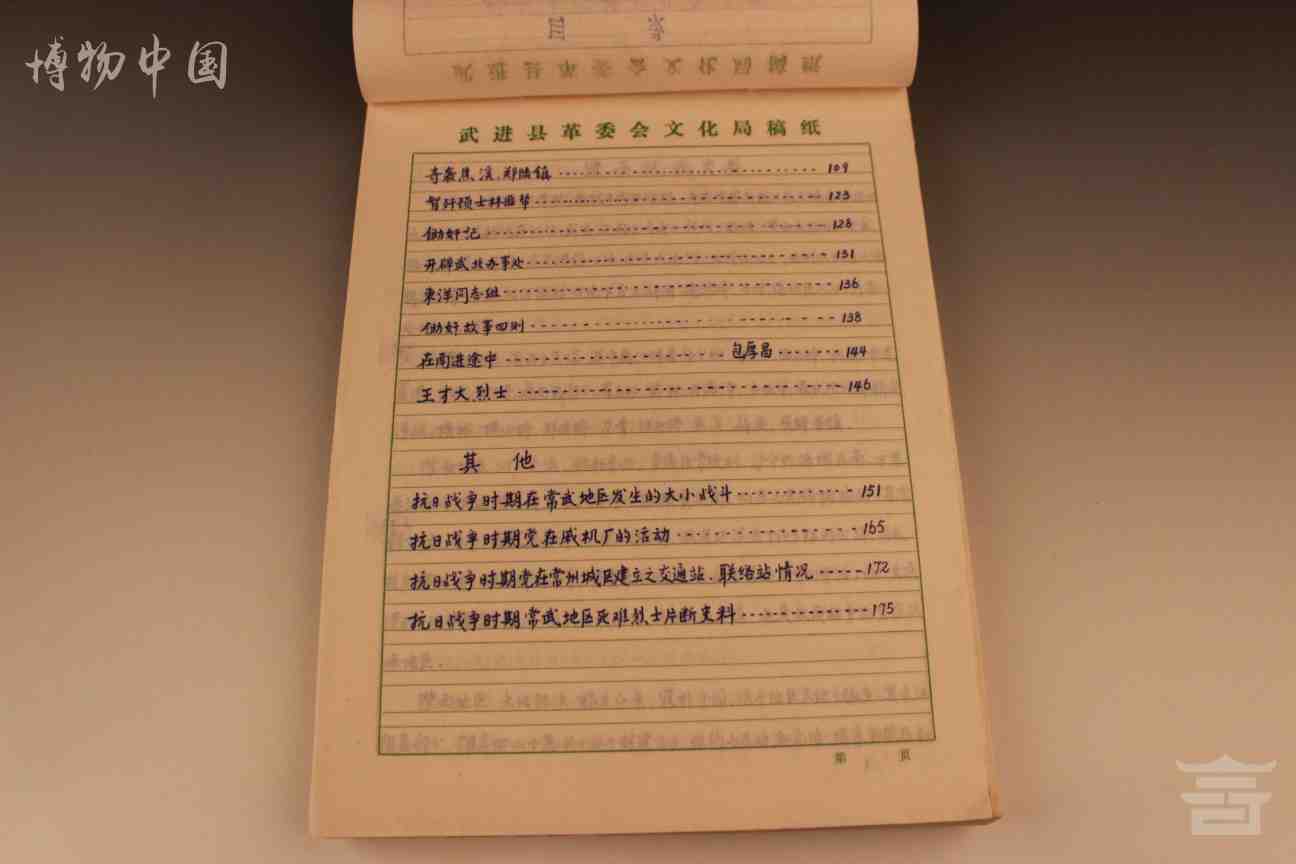 博物中国
目录
武进县革委会文化局稿纸
武进县革委会文化局稿纸
奇袭焦溪、郑陆镇 109
智歼顽士林 123
锄奸记 128
开辟武北办事处 131
东洋同志组 136
锄奸故事四则 138
在南进途中 包厚昌 144
王才大烈士 146
其他
抗日战争时期在常武地区发生的大小战斗 151
抗日战争时期党在戚机厂的活动 165
抗日战争时期党在常州城区建立之交通站、联络站情况 172
抗日战争时期常武地区死难烈士片断史料 175
第 页